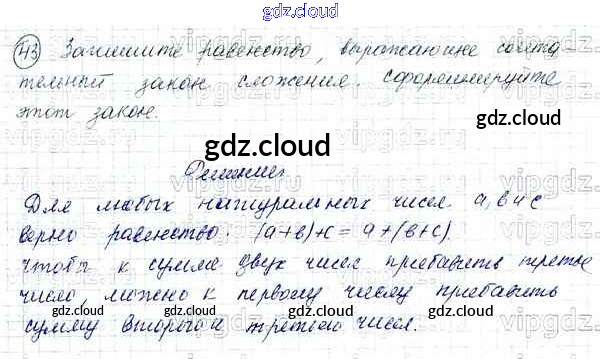 gdz.cloud
43 Запишите равенство, выражающие сочета-
тельный закон сложения. Сформулируйте
этот закон.
gdz.cloud
gdz.cloud
gdz.cloud
Решение:
Для любых натуральных чисел a, в и c
верно равенство: (a+в)+c = a+(в+c).
Чтобы к сумме двух чисел прибавить третье
число, можно к первому числу прибавить
сумму второго и третьего чисел.
gdz.cloud
gdz.cloud